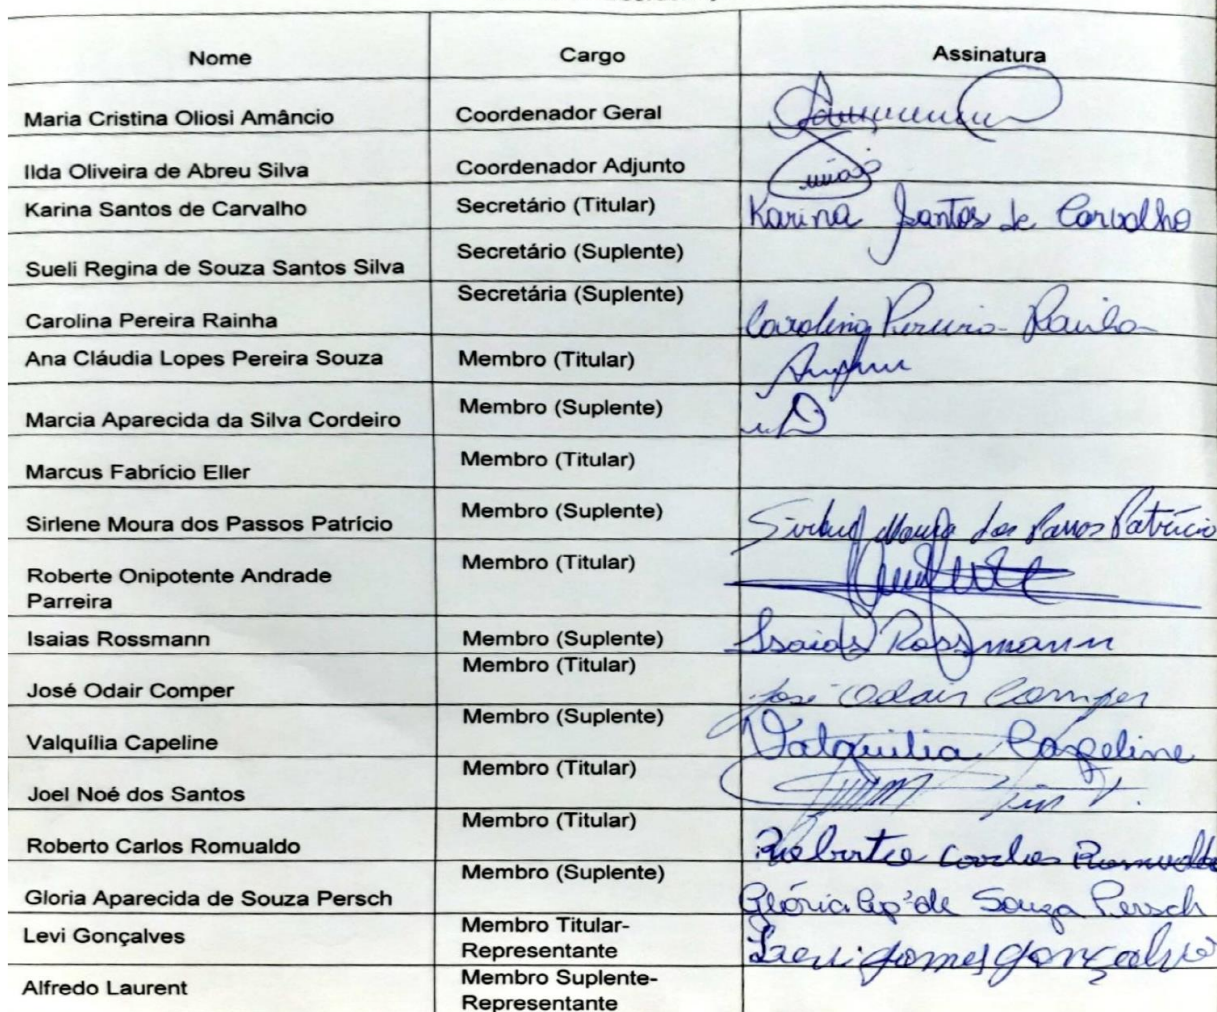 Nome Cargo Assinatura
Maria Cristina Oliosi Amâncio Coordenador Geral
Ilda Oliveira de Abreu Silva Coordenador Adjunto
Karina Santos de Carvalho Secretário (Titular) Karina Santos de Carvalho
Sueli Regina de Souza Santos Silva Secretário (Suplente)
Carolina Pereira Rainha Secretária (Suplente) Carolina Pereira Rainha
Ana Cláudia Lopes Pereira Souza Membro (Titular)
Marcia Aparecida da Silva Cordeiro Membro (Suplente)
Marcus Fabrício Eller Membro (Titular)
Sirlene Moura dos Passos Patrício Membro (Suplente) Sirlene Moura dos Passos Patrício
Roberte Onipotente Andrade Membro (Titular)
Parreira
Isaias Rossmann Membro (Suplente) Isaias Rossmann
José Odair Comper Membro (Titular) José Odair Comper
Valquília Capeline Membro (Suplente) Valquilia Capeline
Joel Noé dos Santos Membro (Titular)
Roberto Carlos Romualdo Membro (Titular) Roberto Carlos Romualdo
Gloria Aparecida de Souza Persch Membro (Suplente) Glória Ap.ª de Souza Persch
Levi Gonçalves Membro Titular- Levi Gomes Gonçalves
Representante
Alfredo Laurent Membro Suplente-
Representante